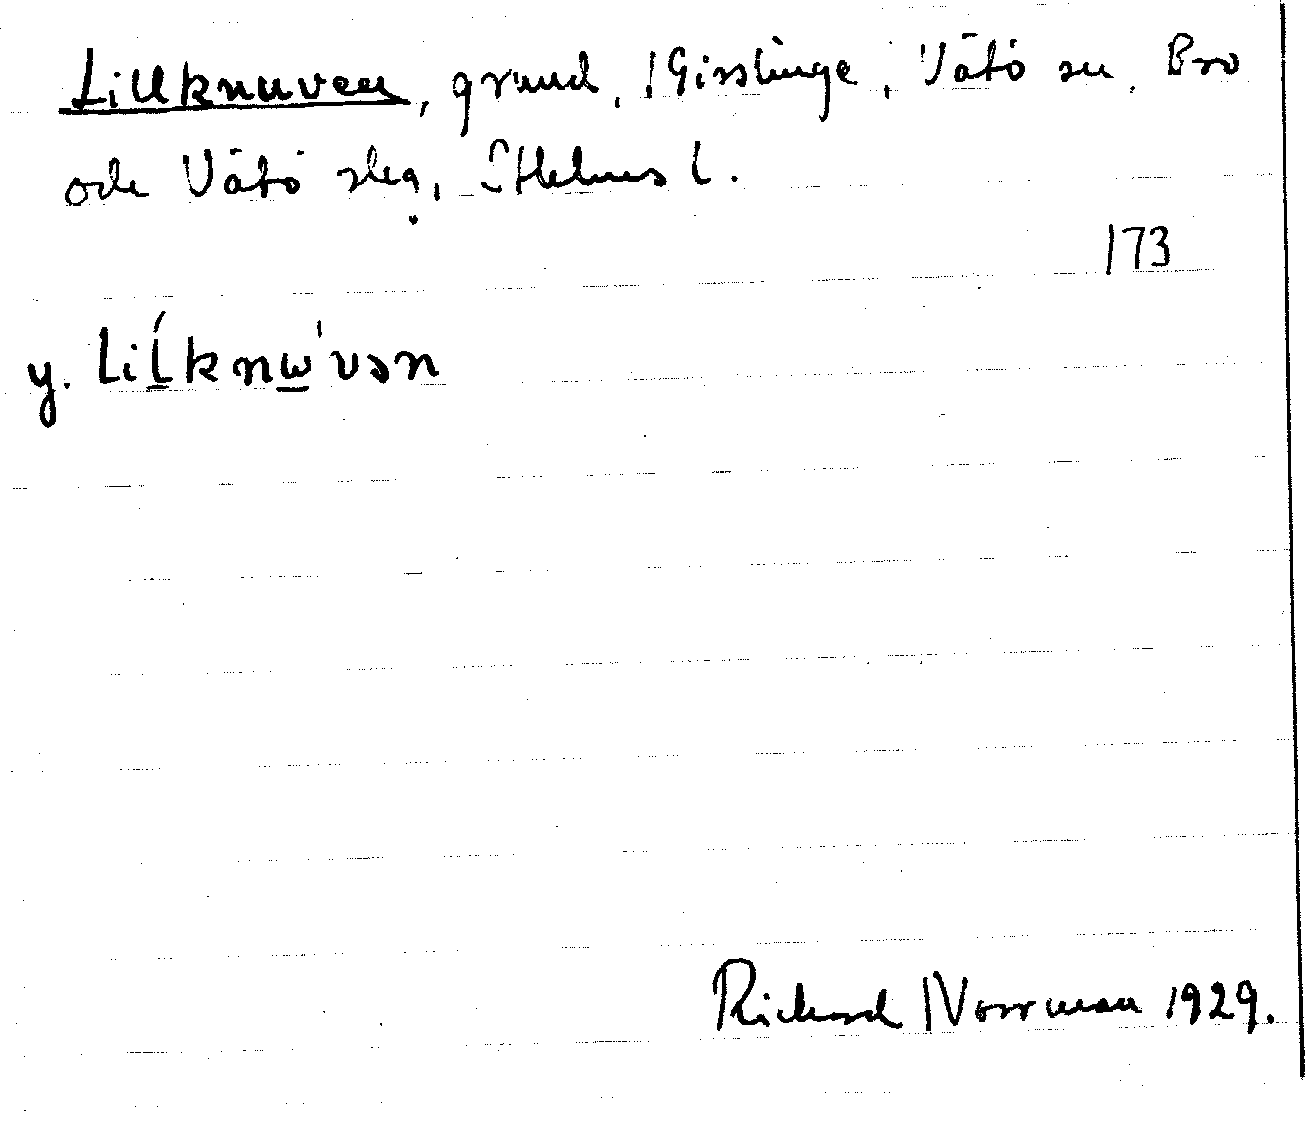 Lillknuven, grund, Gisslinge, Vätö sn, Bro
och Vätö slg, Sthlms l.
173
y. Lilknɯ'vən
Richard Norrman 1929.